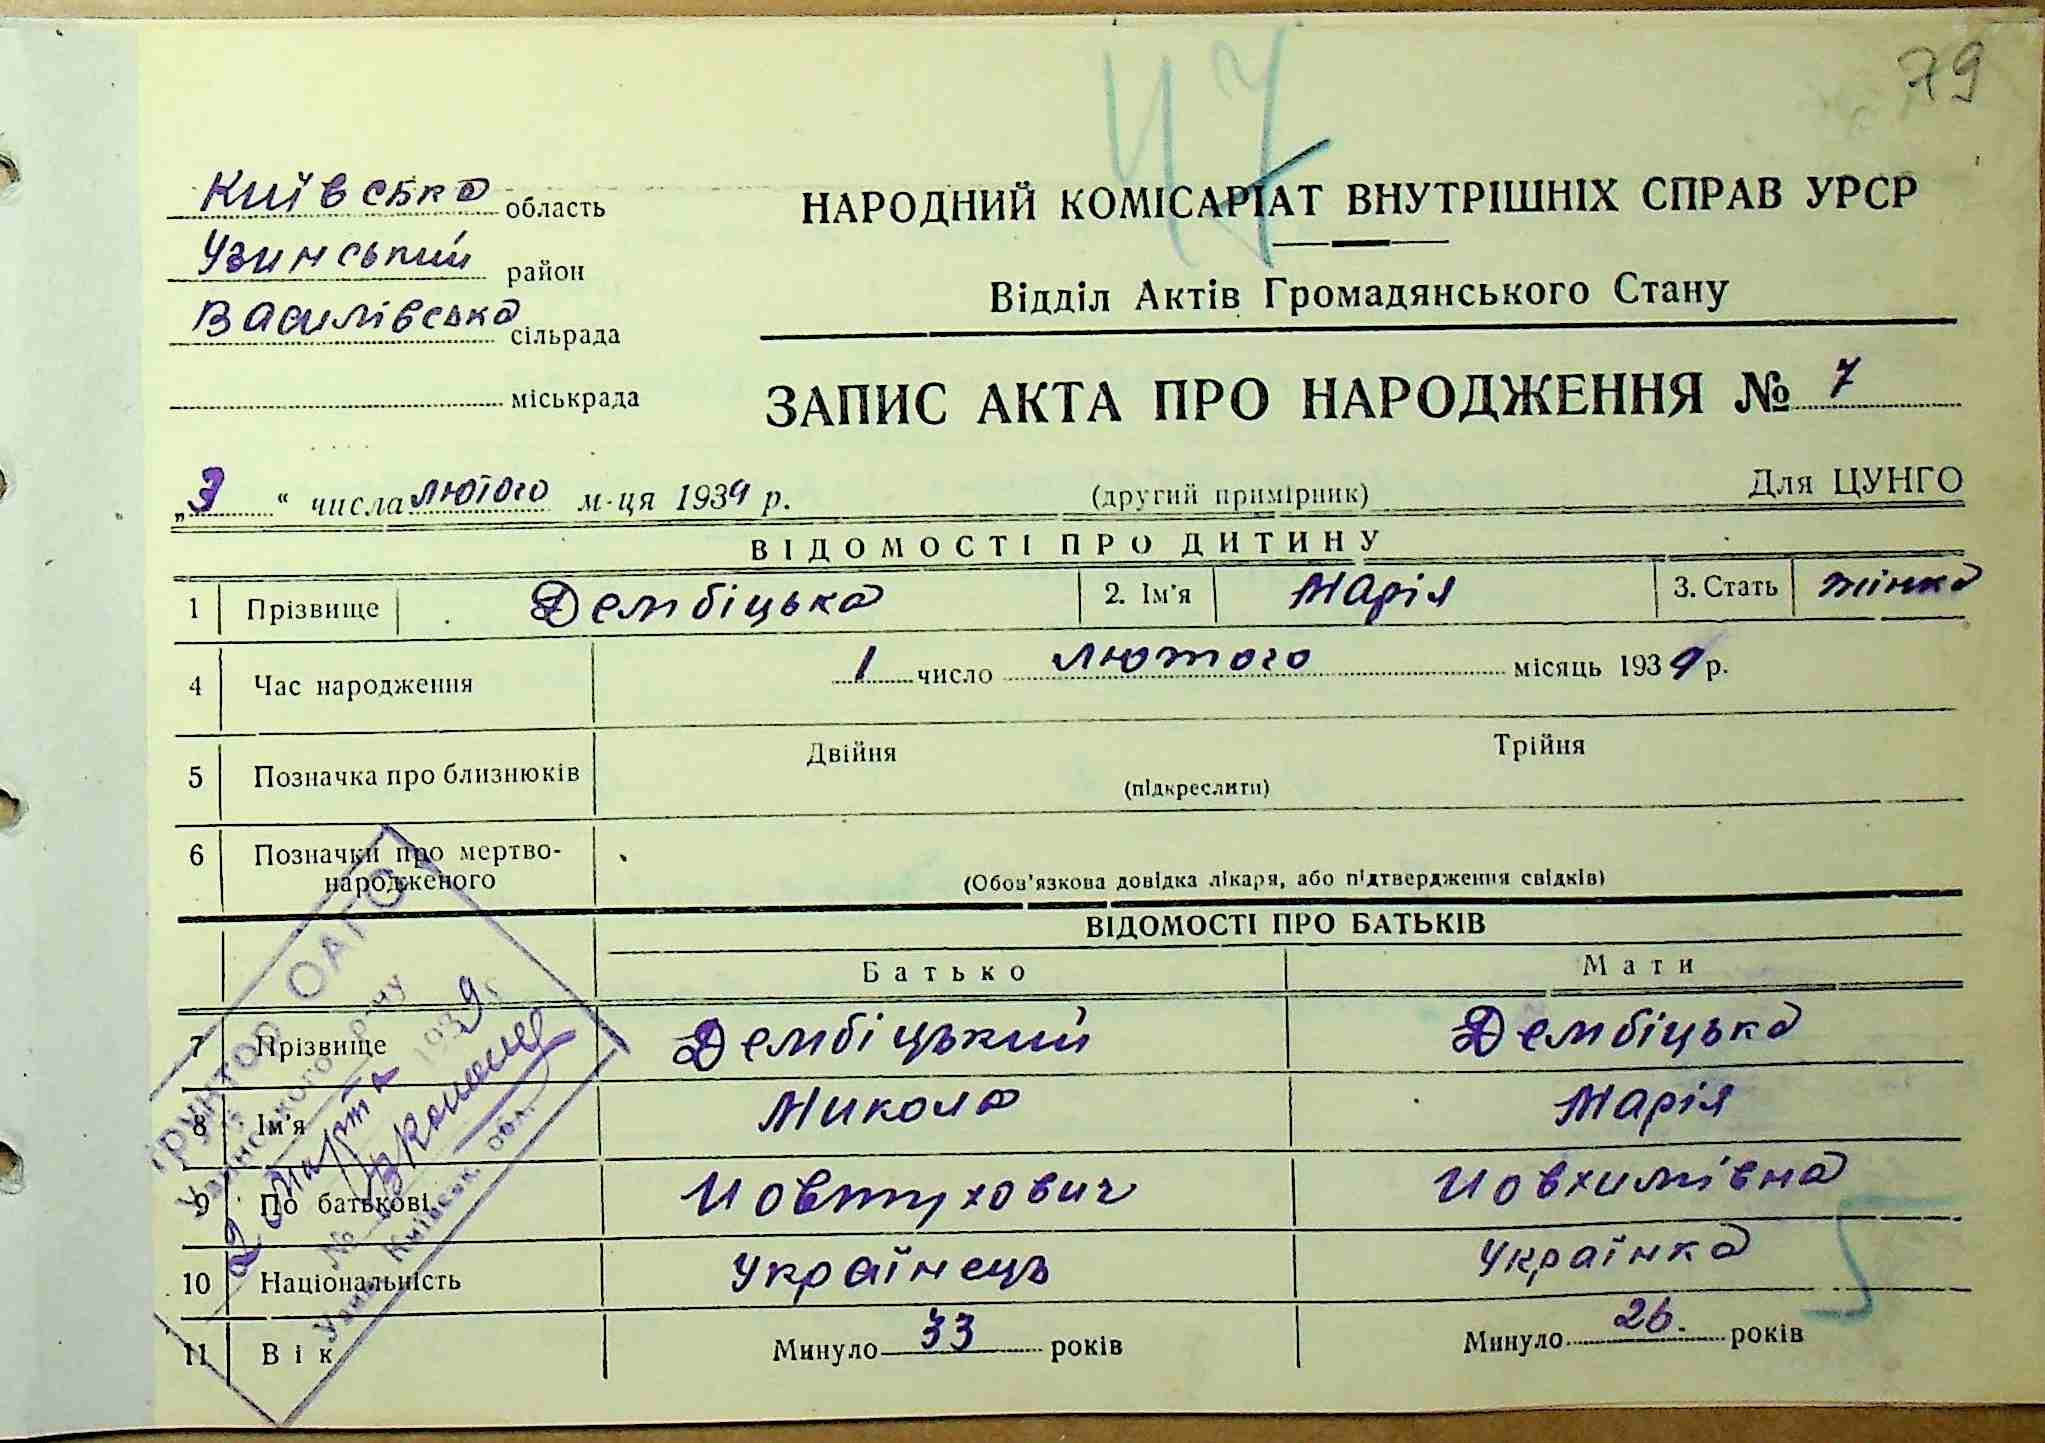 79
47
Київська область
Узинський район
Василівська сільрада
міськрада
НАРОДНИЙ КОМІСАРІАТ ВНУТРІШНІХ СПРАВ УРСР
Відділ Актів Громадянського Стану
ЗАПИС АКТА ПРО НАРОДЖЕННЯ № 7
„3“ числа лютого м-ця 1939 р. (другий примірник) Для ЦУНГО
ВІДОМОСТІ ПРО ДИТИНУ
1 Прізвище Дембіцька 2. Ім'я Марія 3. Стать жінка
4 Час народження 1 число лютого місяць 1939 р.
5 Позначка про близнюків Двійня Трійня
(підкреслити)
6 Позначки про мертво-
народженого (Обов'язкова довідка лікаря, або підтвердження свідків)
ВІДОМОСТІ ПРО БАТЬКІВ
Батько Мати
7 Прізвище Дембіцький Дембіцька
8 Ім'я Микола Марія
9 По батькові Йовтухович Йовхимівна
10 Національність Українець Українка
11 Вік Минуло 33 років Минуло 26. років
5
ОАГС
Узинського р-ну
2 марта 1939
№
Київськ. обл.